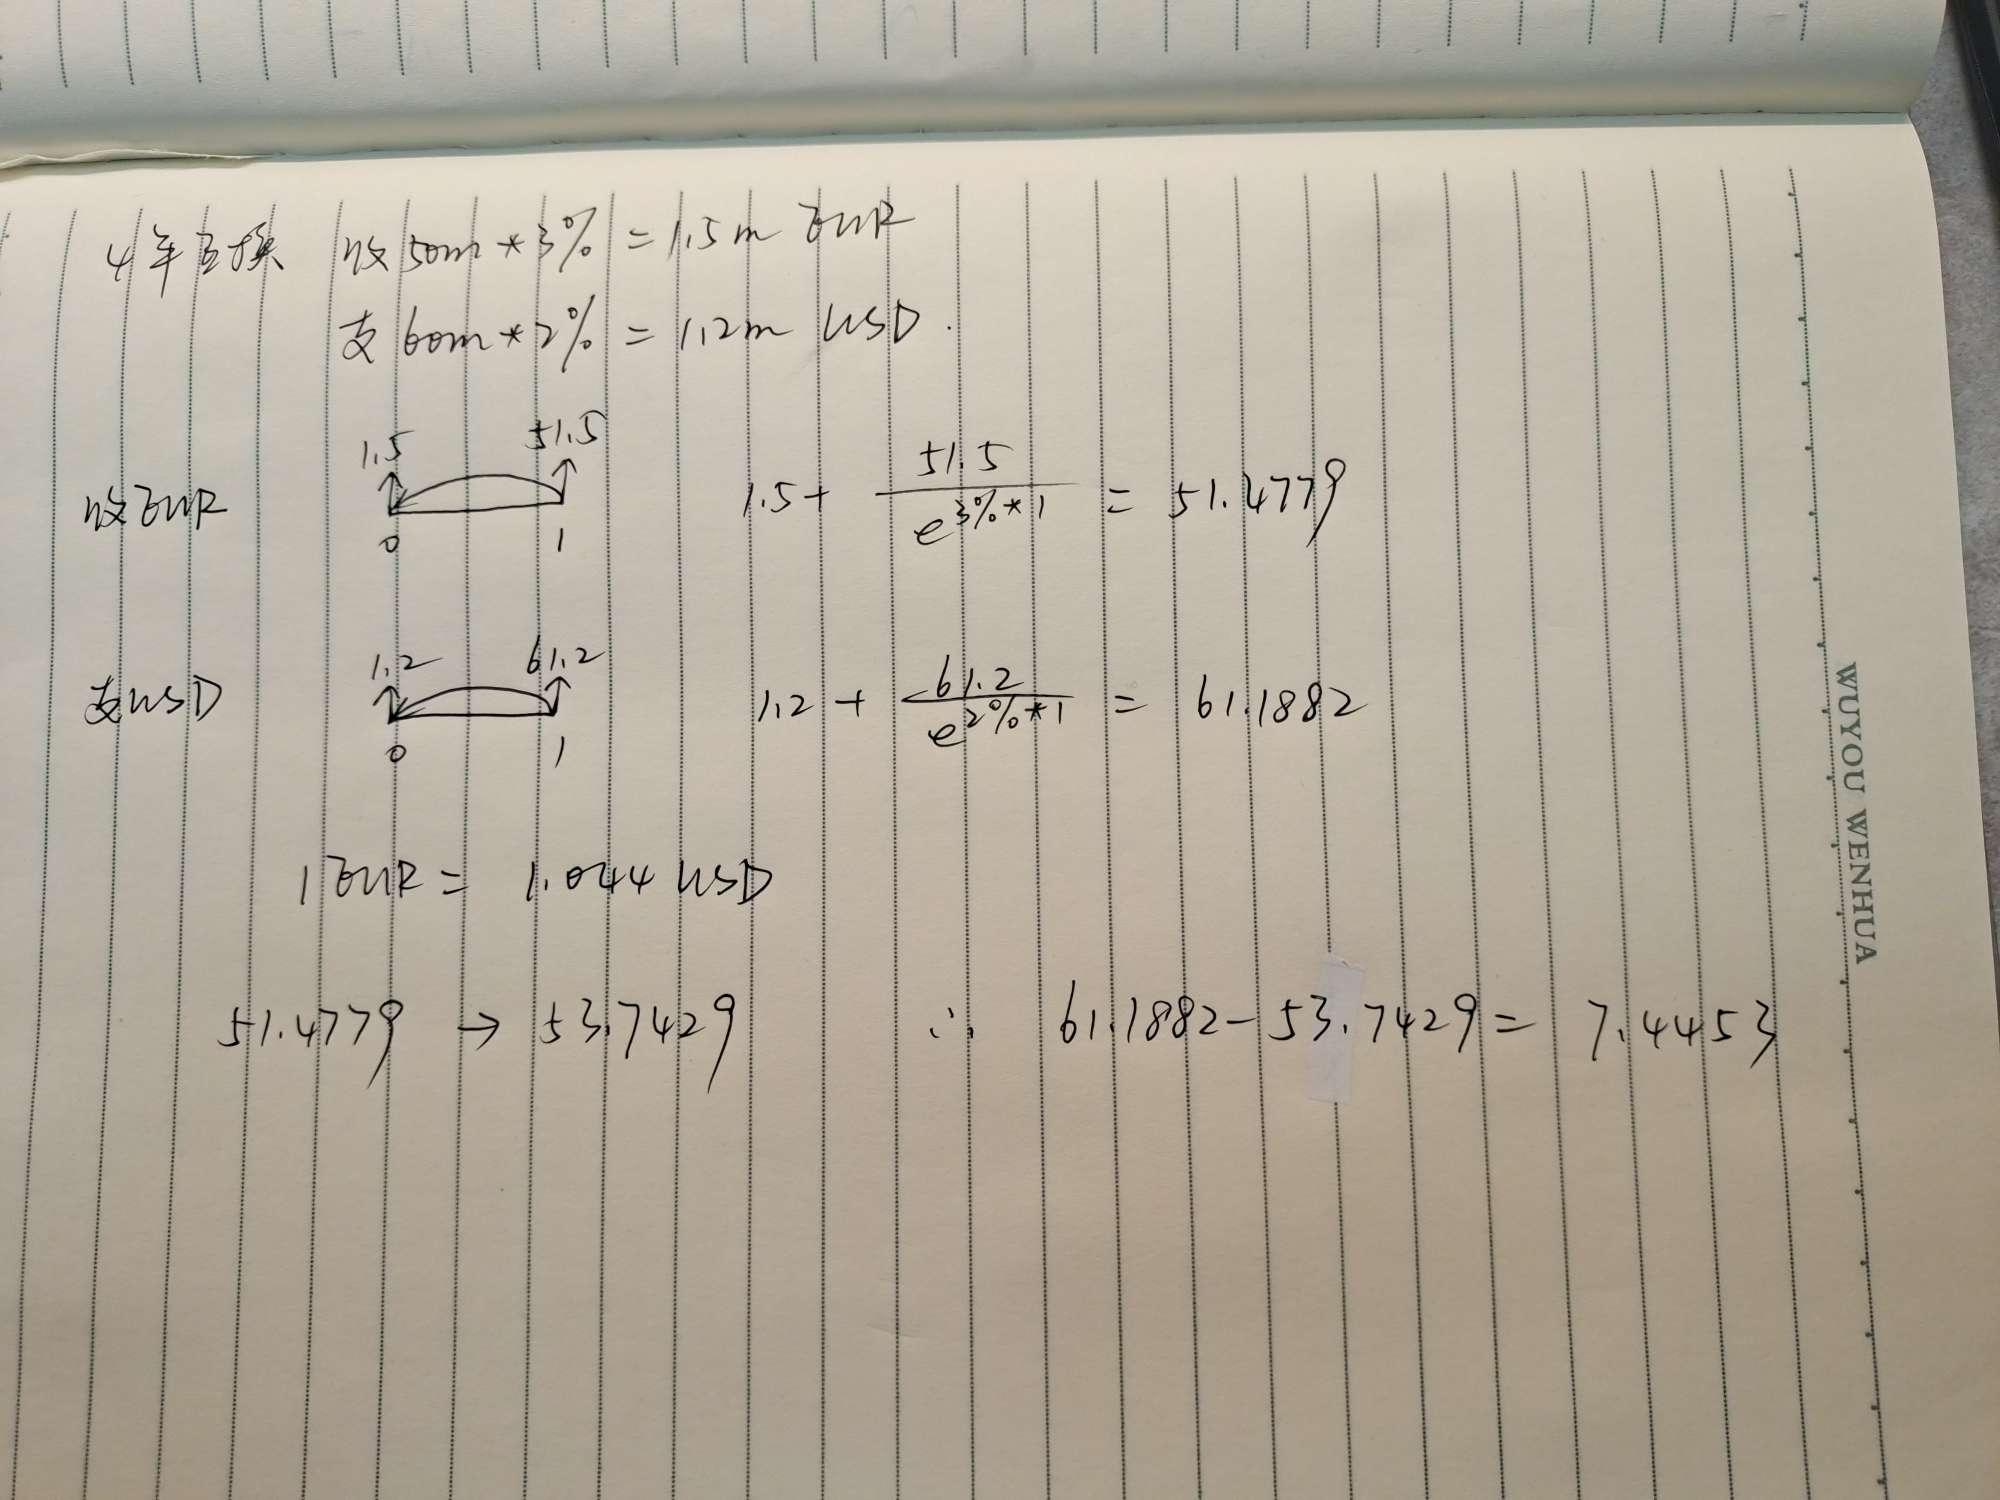 4年互换 收50m*3%=1.5m EUR
支60m*2%=1.2m USD.
1.5 51.5
收EUR 1.5+ 51.5/e^3%*1 = 51.4779
0 1
1.2 61.2
支USD 1.2+ 61.2/e^2%*1 = 61.1882
0 1
1EUR= 1.044 USD
51.4779 → 53.7429 ∴ 61.1882-53.7429= 7.4453
WUYOU WENHUA